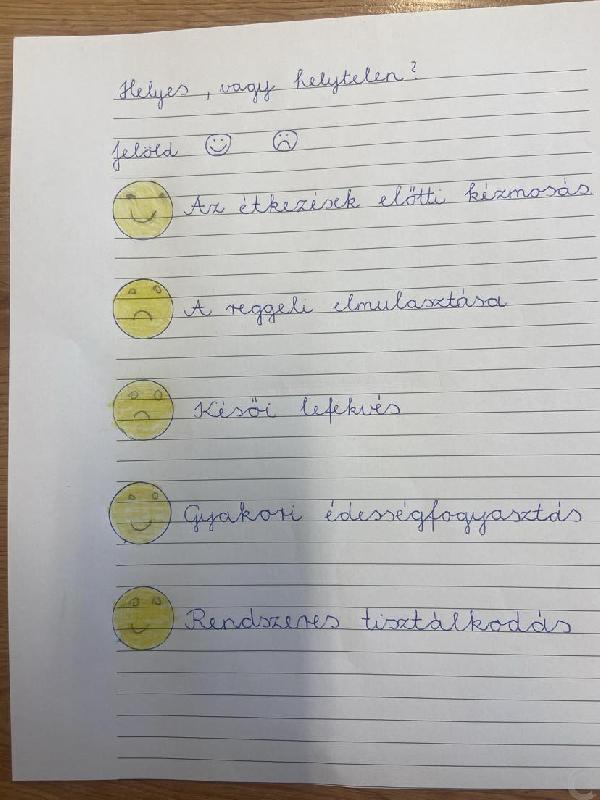 Helyes, vagy helytelen?
jelöld
Az étkezések előtti kézmosás
A reggeli elmulasztása
Késői lefekvés
Gyakori édességfogyasztás
Rendszeres tisztálkodás